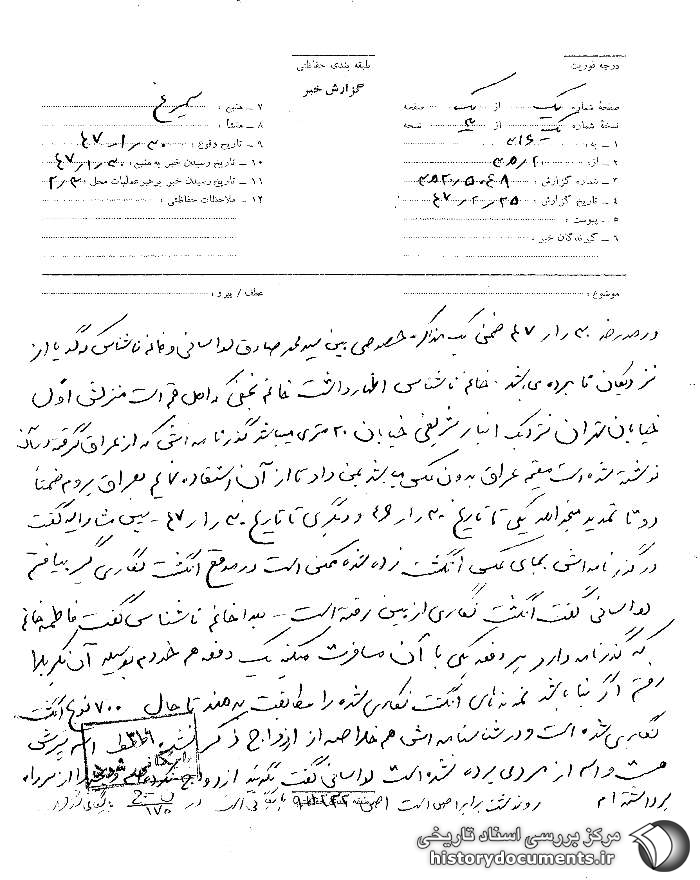 درجه فوریت
طبقه بندی حفاظتی
گزارش خبر
صفحهٔ شماره یک از یک صفحه
نسخهٔ شماره از ۳ نسخه
۱ – به : ۳۱۶
۲ – از :
۳ – شماره گزارش :
۴ – تاریخ گزارش : ۴۷٫۲٫۲۵
۵ – پیوست :
۶ – گیرندگان خبر :
۷ – منبع :
۸ – منشأ :
۹ – تاریخ وقوع : ۴۷٫۱٫۳۰
۱۰ – تاریخ رسیدن خبر به منبع : ۴۷٫۱٫۳۰
۱۱ – تاریخ رسیدن خبر برهبر عملیات محل
۱۲ – ملاحظات حفاظتی :
موضوع :
عطف / پیرو :
در مورخه ۴۷٫۱٫۳۰ ضمن یک مذاکره خصوصی بین سید محمد صادق لواسانی و خانم ناشناس که گویا از
نزدیکان نامبرده می باشد . خانم ناشناس اظهار داشت خانم نجفی که اهل قم است منزلش اول
خیابان تهران نزدیک انبار شریفی خیابان ۲۰ متری میباشد گذرنامه اش که از عراق گرفته در آن
نوشته شده است مقیم عراق بدون عکس میباشد بمن داد تا از آن استفاده نمایم بعراق بروم ضمناً
دو تا تمدید یکی تا تاریخ ۴۶٫۱٫۳۰ و دیگری تا تاریخ ۴۷٫۱٫۳۰ – سپس مشارالیه گفت
در گذرنامه اش بجای عکس انگشت زده شده ممکن است در موقع انگشت نگاری گیر بیافتم
لواسانی گفت انگشت نگاری از بین رفته است – بعدا خانم ناشناس گفت فاطمه خانم
که گذرنامه دارد هر دفعه یکی با آن مسافرت میکند یک دفعه هم خودم بوسیله آن بکربلا
رفتم اگر بنا باشد نمونه های انگشت نگاری شده را مطابقت بدهند تا حال ۷۰۰ نوع انگشت
نگاری شده است و در شناسنامه اش هم خلاصه از ازدواج ذکر نشده فقط اسم پسرش
هست و اسم از مردی برده نشده است لواسانی گفت بگوئید ازدواج نکردم و را از سر راه
برداشته ام
رونوشت برابر اصل است اصل در بایگانی است در
مرکز بررسی اسناد تاریخی
historydocuments.ir